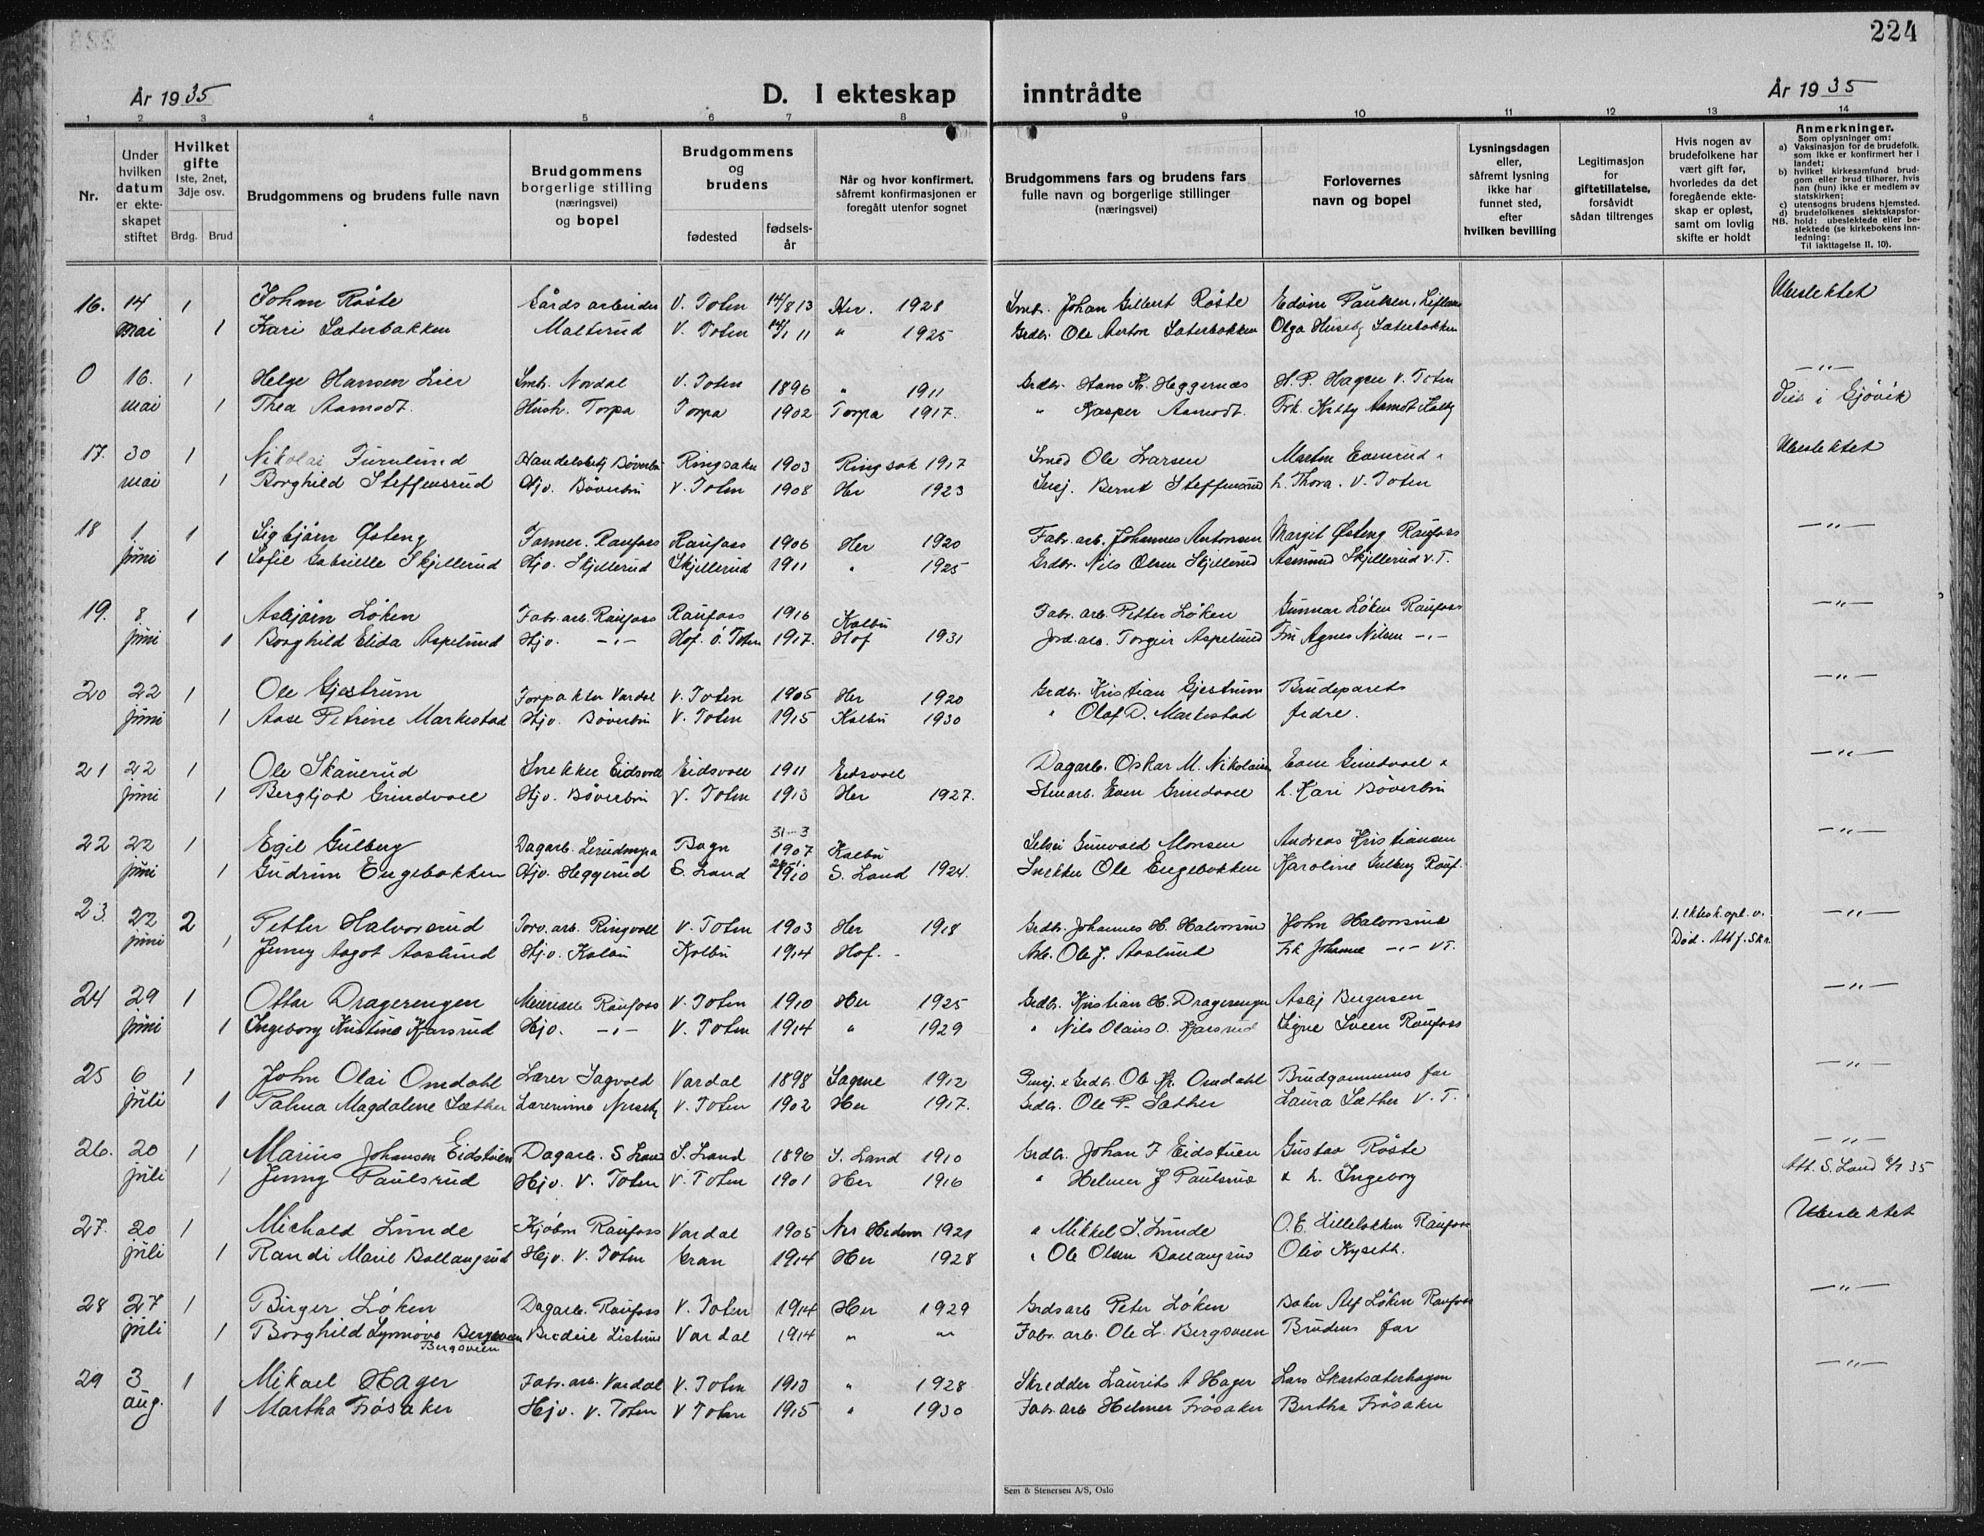 224
År 1935
D. I ekteskap inntrådte
År 1935
1 2 3 4 5 6 7 8 9 10 11 12 13 14
Nr.
Under hvilken datum er ekte- skapet stiftet
Hvilket gifte 1ste, 2net, 3dje osv.
Brdg. Brud
Brudgommens og brudens fulle navn
Brudgommens borgerlige stilling (næringsvei) og bopel
Brudgommens og brudens
fødested
fødsels- år
Når og hvor konfirmert, såfremt konfirmasjonen er foregått utenfor sognet
Brudgommens fars og brudens fars fulle navn og borgerlige stillinger (næringsvei)
Forlovernes navn og bopel
Lysningsdagen eller, såfremt lysning ikke har funnet sted, efter hvilken bevilling
Legitimasjon for giftetillatelse, forsåvidt sådan tiltrenges
Hvis nogen av brudefolkene har vært gift før, hvorledes da det foregående ekte- skap er opløst, samt om lovlig skifte er holdt
Anmerkninger.
Som oplysninger om:
a) Vaksinasjon for de brudefolk, som ikke er konfirmert her i landet;
b) hvilket kirkesamfund brud- gom eller brud tilhører, hvis han (hun) ikke er medlem av statskirken;
c) utensogns brudens hjemsted.
d) brudefolkenes slektskapsfor- hold: ubeslektede eller be- slektede (se kirkebokens inn- ledning:
NB.
Til iakttagelse II, 10).
16. 14 1 Johan Røste Gårdsarbeider V. Toten 14/8 13 Her. 1928 Smbr. Johan Gilbert Røste Edvin Paulsen, Ubeslektet
mai 1 Kari Sæterbakken Malterud V. Toten 14/1 11 " 1925 Grdbr. Ole Anton Sæterbakken Olga Huseby Sæterbakken
0 16. 1 Helge Hansen Lier Smbr. Nordal V. Toten 1896 " 1911 Grdbr. Hans Kr. Heggernæs H. P. Hagen V. Toten -"-
mai 1 Thea Aamodt. Hush. Torpa Torpa 1902 Torpa 1917. " Kasper Aamodt. Frk. Kitty Aamodt Viet i Gjøvik
17. 30 1 Nikolai Furulund Handelsbetj Bøverbru Ringsaker 1903 Ringsak 1917 Smed Ole Larsen Martin Evenrud Ubeslektet
mai 1 Borghild Steffensrud Hjv. Bøverbru V. Toten 1908 Her 1923 Insj. Bernt Steffensrud h. Thora. V. Toten
18 1 1 Sigbjørn Østeng Former. Raufoss Raufoss 1906 Her 1920 Fabr. arb. Johannes Antonsen Margit Østeng Raufoss -"-
juni 1 Sofie Gabrielle Skjellerud Hjv. Skjellerud Skjellerud 1911 " 1925 Grdbr. Nils Olsen Skjellerud Asmund Skjellerud V. T.
19. 8 1 Asbjørn Løken Fabr. arb. Raufoss Raufoss 1916 Kolbu Fabr. arb. Petter Løken Gunnar Løken Raufoss -"-
juni 1 Borghild Elida Aspelund Hjv. -"- Hof. Ø. Toten 1917. Hof 1931 Jord. arb. Torgeir Aspelund Fru Agnes Nilsen -"-
20 22 1 Ole Gjestrum Torpakter Vardal V. Toten 1905 Her 1920 Grdbr. Kristian Gjestrum Brudeparets -"-
juni 1 Aase Petrine Markestad Hjv. Bøverbru V. Toten 1915 Kolbu 1930 " Olaf D. Markestad fedre.
21 22 1 Ole Skauerud Snekker Eidsvoll Eidsvoll 1911 Eidsvoll Dagarb. Oskar M. Nikolaisen Even Grindvoll & -"-
juni 1 Bergljot Grindvoll Hjv. Bøverbru V. Toten 1913 Her 1927. Stenarb. Even Grindvoll h. Kari Bøverbru
22 22 1 Egil Gulberg Dagarb. Bagn 31-3 1907 Kolbu Selvei Gunvald Monsen Andreas Kristiansen -"-
juni 1 Gudrun Engebakken Hjv. Heggerud S. Land 1910 S. Land 1924. Snekker Ole Engebakken Karoline Gulberg Rauf.
23. 22 2 Petter Halvorsrud Torv. arb. Ringvoll V. Toten 1903 Her 1918 Grdbr. Johannes H. Halvorsrud John Halvorsrud 1. ektesk. opl. v. -"-
juni 1 Jenny Aagot Aaslund Hjv. Kolbu Kolbu 1914 Hof. - Arb. Ole J. Aaslund Frk Johanne -"- V T. Død. Att f. Skr.
24 29 1 Ottar Dragerengen Meierian Raufoss V. Toten 1910 Her 1925 Grdbr. Kristian H. Dragerengen Asbj Bergersen -"-
juni 1 Ingeborg Kristine Kjarsrud Hjv. -"- V. Toten 1914 " 1929 " Nils Olaus O. Kjarsrud Signe Sveen Raufoss
25 6 1 John Olai Omdahl Lærer Sagvold Vardal 1898 Sagene 1912 Pensj. & Grdbr. Ole Kr. Omdahl Brudgommens far -"-
juli 1 Palma Magdalene Sæther Lærerinne V. Toten 1902 Her 1917. Grdbr. Ole P. Sæther Laura Sæther V. T.
26. 20 1 Marius Johansen Eidstuen Dagarb. S Land S. Land 1896 S. Land 1910 Grdbr. Johan J Eidstuen Gustav Røste -"-
juli 1 Jenny Paulsrud Hjv. V. Toten V. Toten 1901 Her 1916 " Helmer J Paulsrud & h. Ingeborg Att. S. Land 9/7 35
27. 20 1 Michael Lunde Kjøbm Raufoss Vardal 1905 1921 " Mikkel S. Lunde O. E. Lillebakken Raufoss Ubeslektet
juli 1 Randi Marie Bollangrud Hjv. V. Toten Gran 1914 Her 1928 " Ole Olsen Bollangrud Oliv Kyseth.
28 27 1 Birger Løken Dagarb. Raufoss V. Toten 1914 Her 1929 Grdsarb Peter Løken Baker Alf Løken Raufoss -"-
juli 1 Borghild Synnøve Bergsveen Bergsveen Vardal 1914 " " Fabr. arb. Ole L. Bergsveen Brudens far
29 3 1 Mikael Hager Fabr. arb. Vardal V. Toten 1913 " 1928 Skredder Laurits A Hager Lars Skartsæterhagen -"-
aug. 1 Martha Frøsaker Hjv. V. Toten V Toten 1915 " 1930 Fabr arb Helmer Frøsaker Bertha Frøsaker
Sem & Stenersen A/S, Oslo